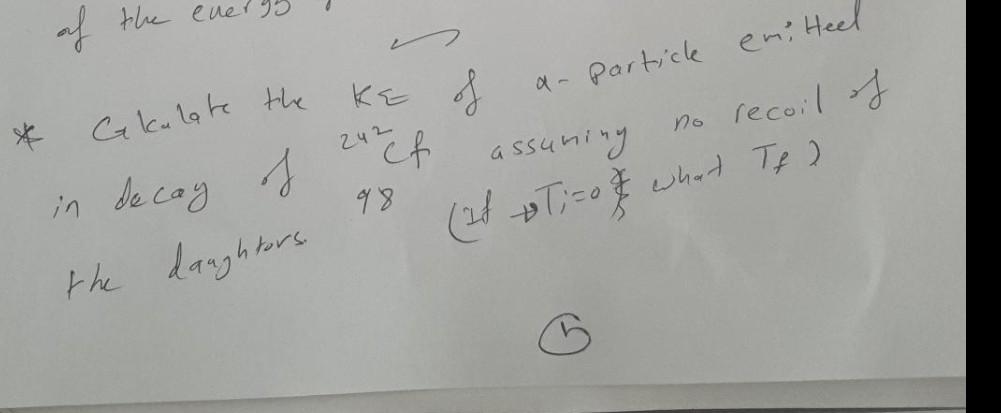 of the energy
* Calculate the KE of α- Particle emitted
in decay of ²⁴²₉₈Cf assuming no recoil of
the daughters. (If → Ti=0 & what Tf)
5